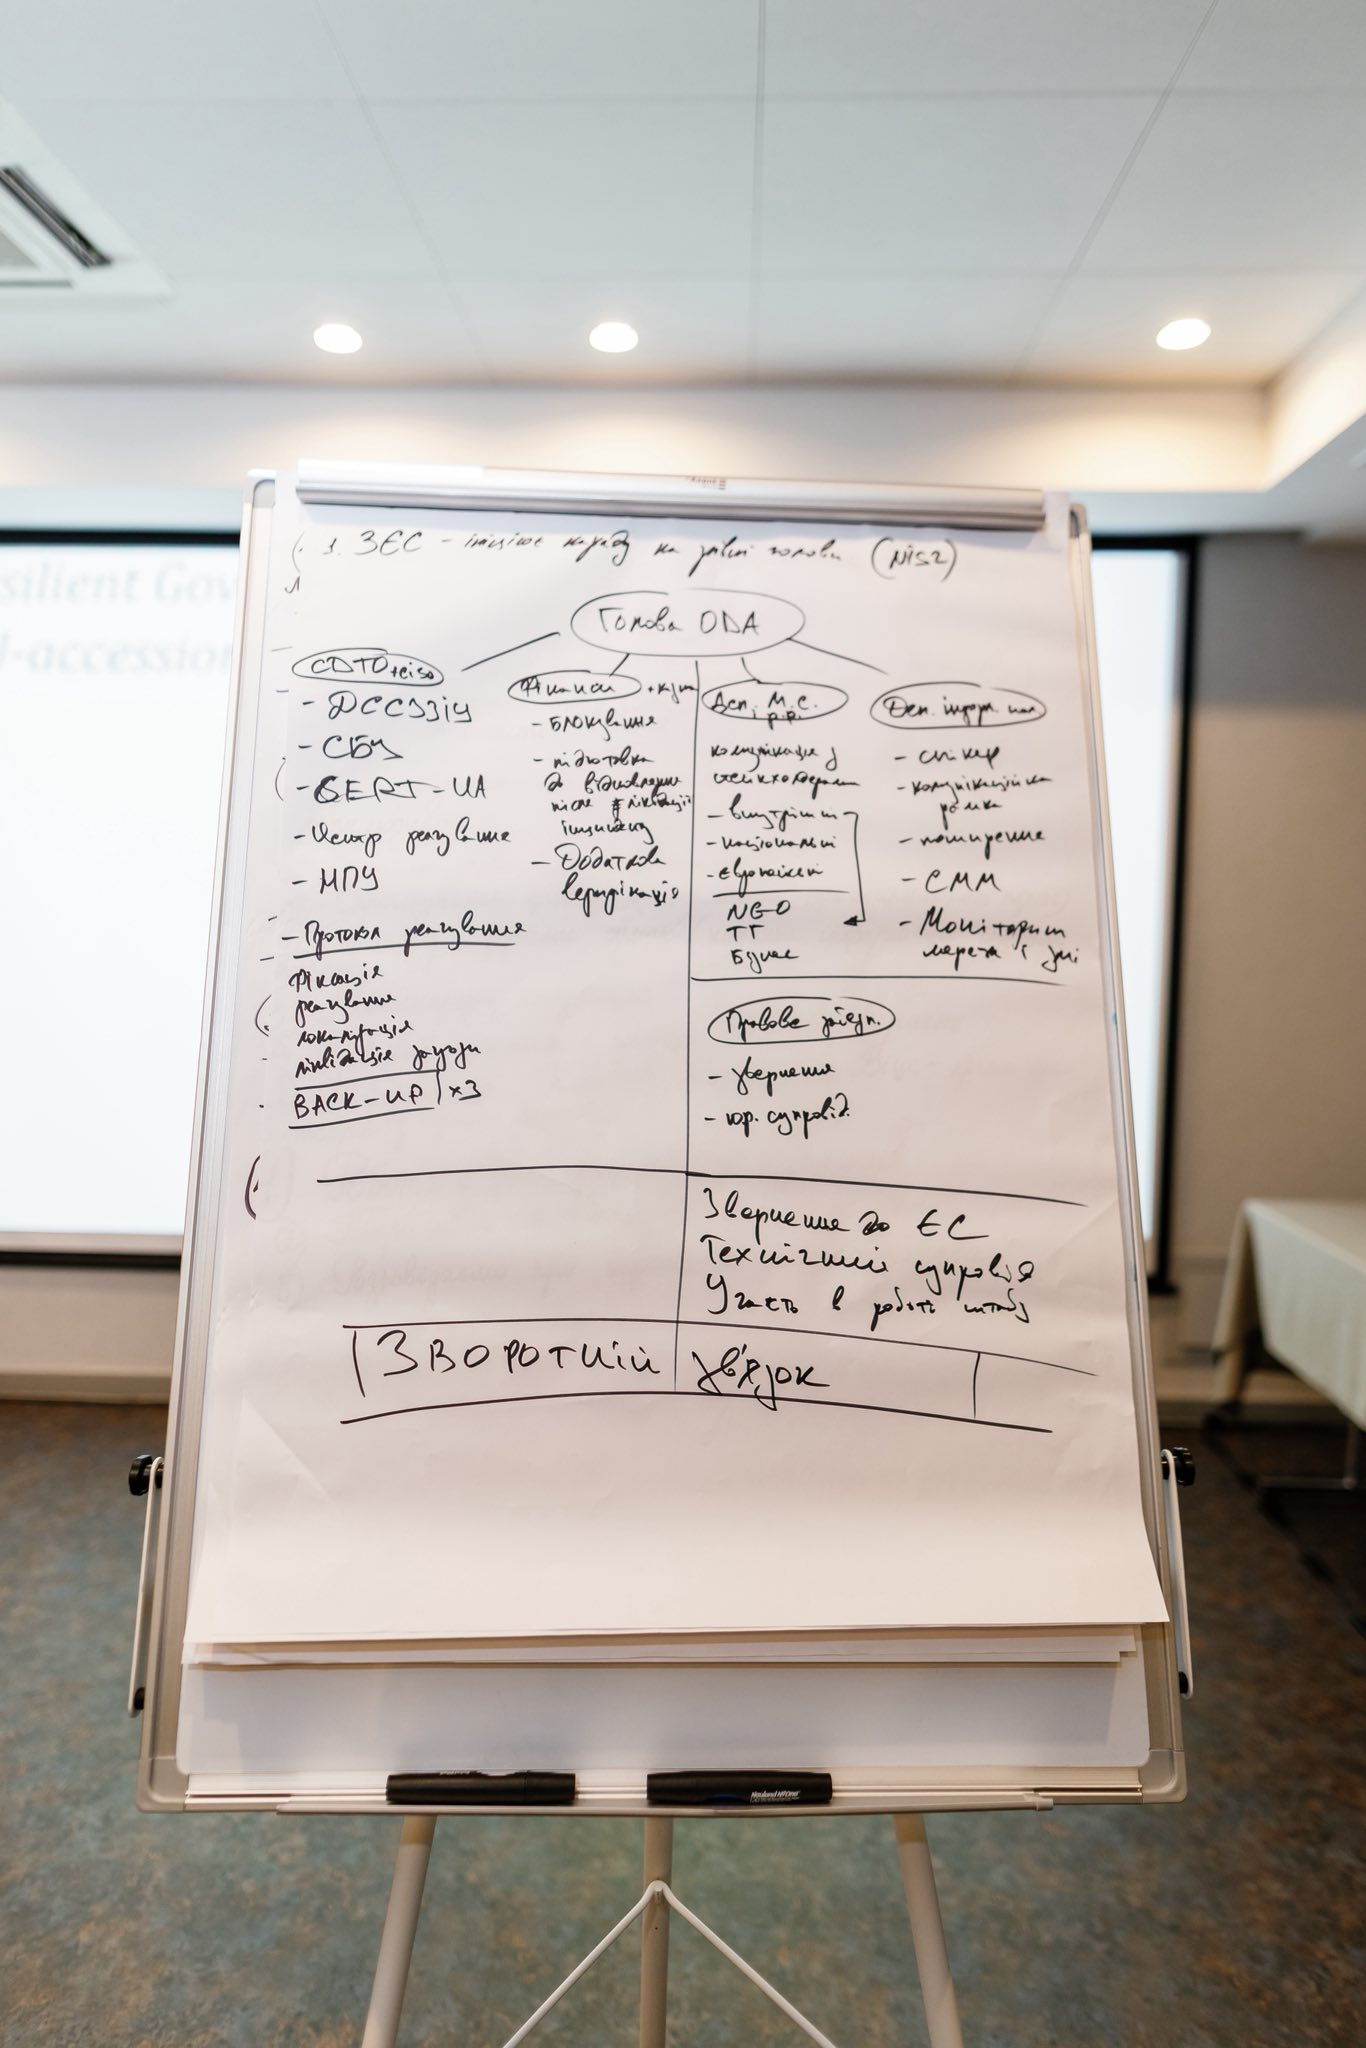 1. ЗЄС - ініціює нараду на рівні голови (NIS2)
Голова ОДА
CDTO+ciso
- ДССЗЗІУ
- СБУ
- CERT-UA
- Центр реагування
- НПУ
- Протокол реагування
Фіксація
реагування
локалізація
ліквідація загрози
BACK-UP x3
Фінанси
- Блокування
- підготовка
до відновлення
після ліквідації
інциденту
- Додаткова
верифікація
Деп. М.С.
р.р.
комунікація з
стейкхолдерами
- внутрішні
- національні
- європейські
NGO
ТГ
Бізнес
Деп. інформ.
- спікер
- комунікаційна
рамка
- поширення
- СММ
- Моніторинг
мереж і змі
Правове забезп.
- звернення
- юр. супровід.
Звернення до ЄС
Технічний супровід
Участь в роботі штабу
Зворотній зв'язок
silient Gov
-accession